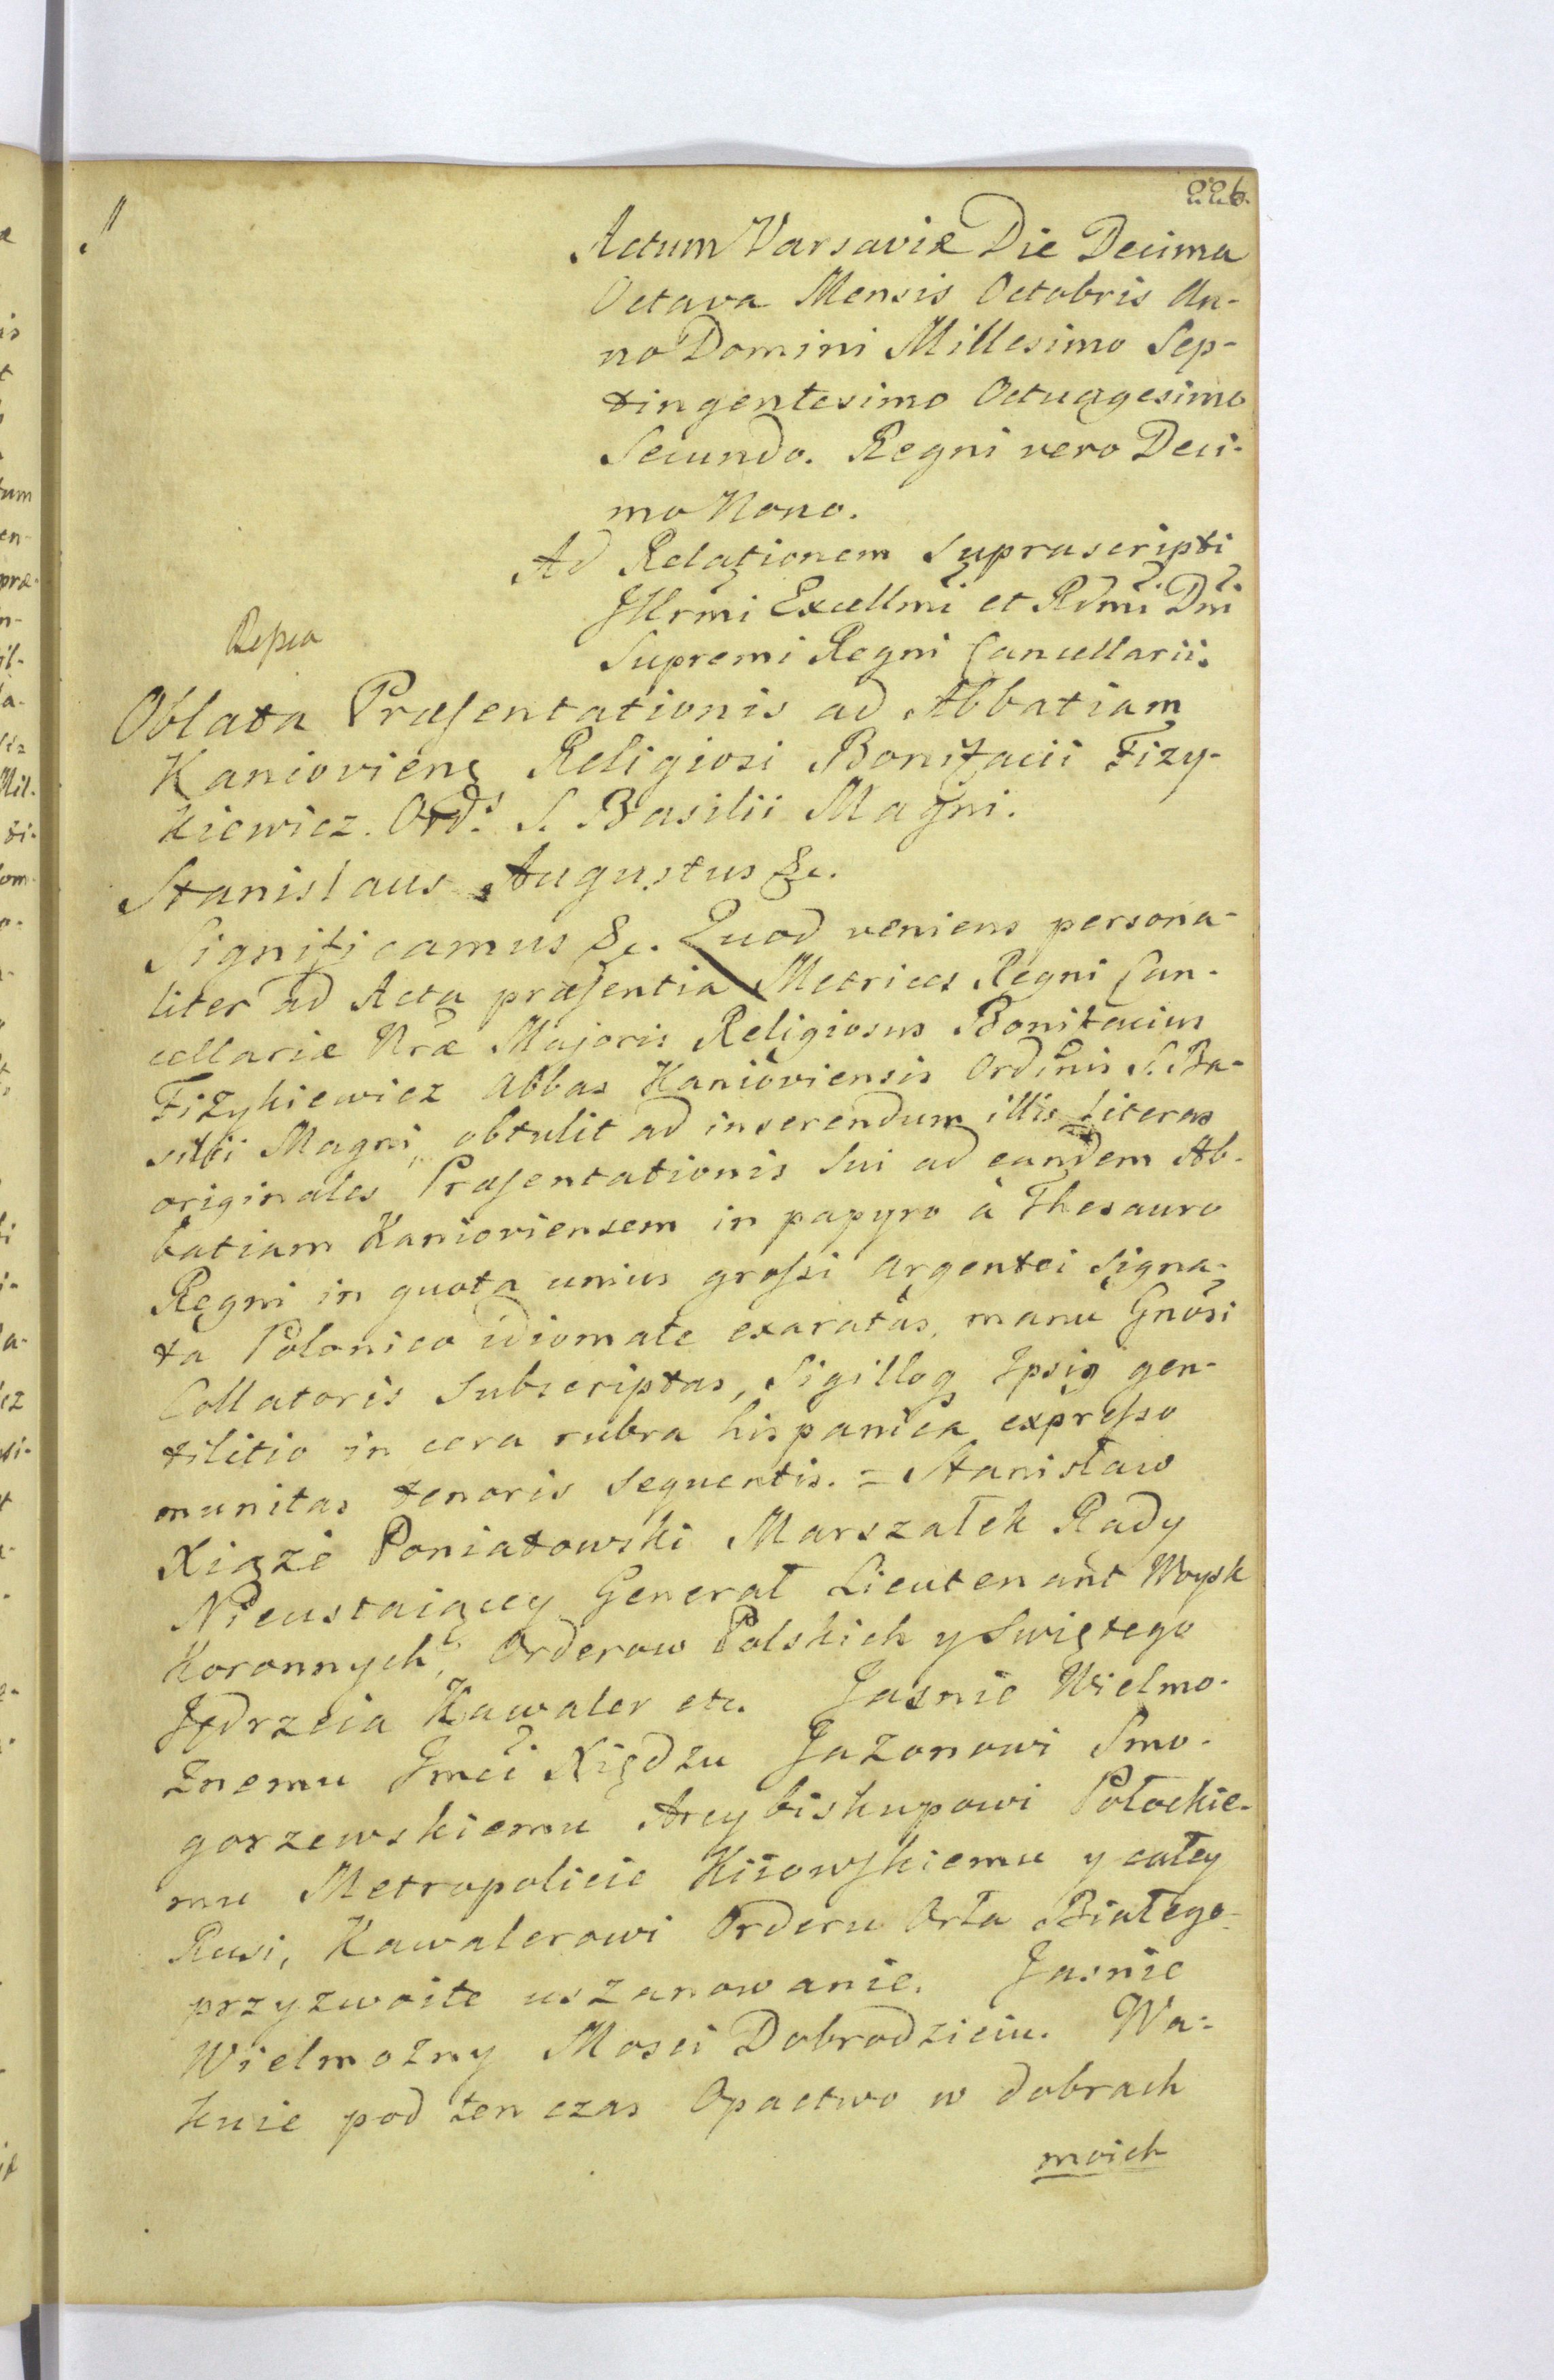 226.
Actum Varsaviæ Die Decima
Octava Mensis Octobris An-
no Domini Millesimo Sep-
tingentesimo Octuagesimo
Secundo. Regni vero Deci-
mo Nono.
Ad Relationem Suprascripti
Jllrmi Excellmi et Rdmi Dni
Supremi Regni Cancellarii.
Oblata Præsentationis ad Abbatiam
Kaniovieng Religiosi Bonifacii Fizy-
kiewicz. Ord.s S. Basilii Magni.
Stanislaus Augustus &c.
Significamus &c. Quod veniens persona-
liter ad Acta præsentia Metrices Regni Can-
cellariæ Nræ Majoris Religiosus Bonifacius
Fizykiewicz Abbas Kanioviensis Ordinis S. Ba-
silii Magni, obtulit ad inserendum illis Literas
originales Præsentationis Sui ad eandem Ab-
batiam Kanioviensem in papyro à Thesauro
Regni in quota unius grossi argentei signa-
ta Polonico idiomate exaratas, manu Gnosi
Collatoris Subscriptas, Sigilloq Ipsig gen-
tilitio in cera rubra hispanica expresso
munitas tenoris sequentis. = Stanisław
Xiąże Poniatowski Marszałek Rady
Nieustaiącey Generał Lieutenant Woysk
Koronnych, Orderow Polskich y Swiętego
Jędrzeia Kawaler etc. Jasnie Wielmo-
żnemu Jmci Xiędzu Jazonowi Smo-
gorzewskiemu Arcybiskupowi Połockie-
mu Metropolicie Kiiowskiemu y całey
Rusi, Kawalerowi Orderu Orła Białego
przyzwoite uszanowanie. Jasnie
Wielmożny Mosci Dobrodzieiu. Wa-
kuie pod ten czas Opactwo w dobrach
moich